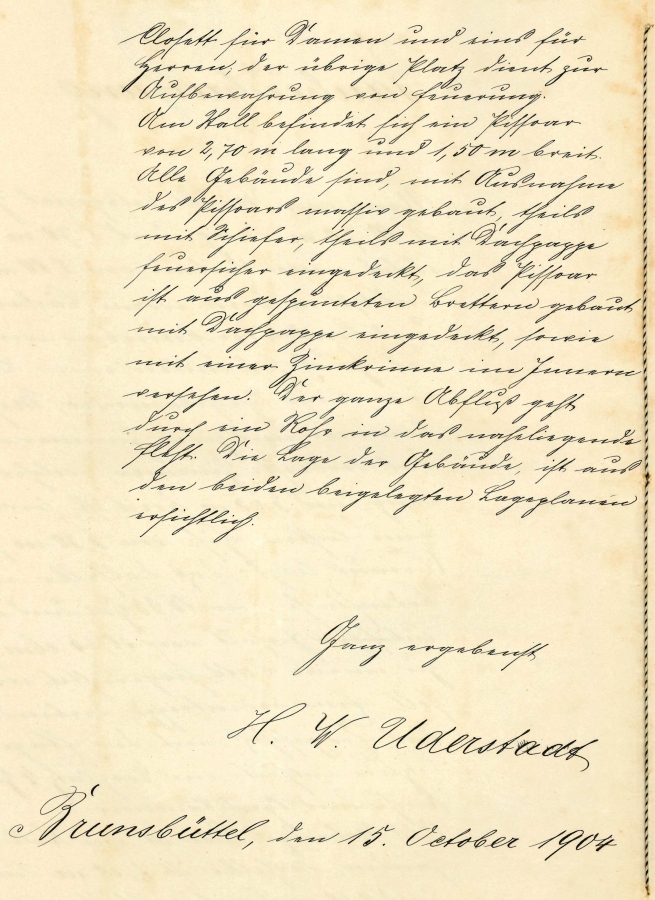 Closett für Damen und eins für
Herren, der übrige Platz dient zur
Aufbewahrung von Feuerung.
Am Stall befindet sich ein Pissoar
von 2,70 m lang und 1,50 m breit.
Alle Gebäude sind, mit Ausnahme
des Pissoars massiv gebaut, theils
mit Schiefer, theils mit Dachpappe
feuersicher eingedeckt, das Pissoar
ist aus gespunteten Brettern gebaut
mit Dachpappe eingedeckt, sowie
mit einer Zinkrinne im Innern
versehen. Der ganze Abfluß geht
durch ein Rohr in das naheliegende
Fleht. Die Lage der Gebäude, ist aus
den beiden beigelegten Lageplanen
ersichtlich.
Ganz ergebenst
H. W. Uderstadt
Brunsbüttel, den 15. October 1904